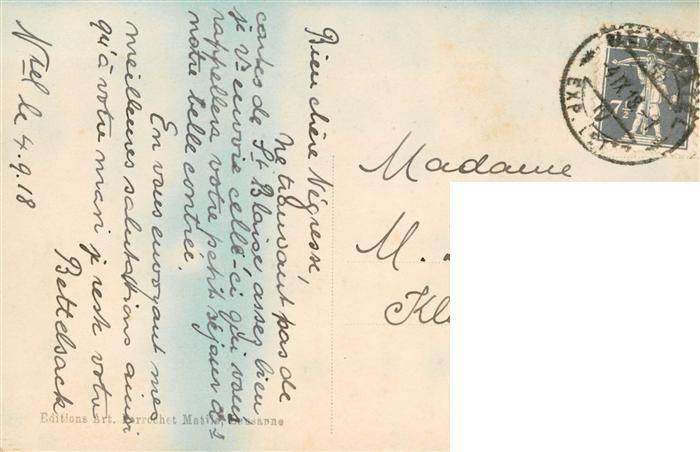 Bien chère Négresse,
Ne trouvant pas de
cartes de St Blaise assez bien
je Vs envoie celle-ci qui vous
rappellera votre petit séjour ds
notre belle contrée.
En vous envoyant mes
meilleures salutations ainsi
qu'à votre mari je reste votre
Bettelsack
Ntel le 4.9.18
Madame
M.
Editions Art. Perrochet Matile, Lausanne
HELVETIA
7½
4 IX 18
IV
EXP. LET